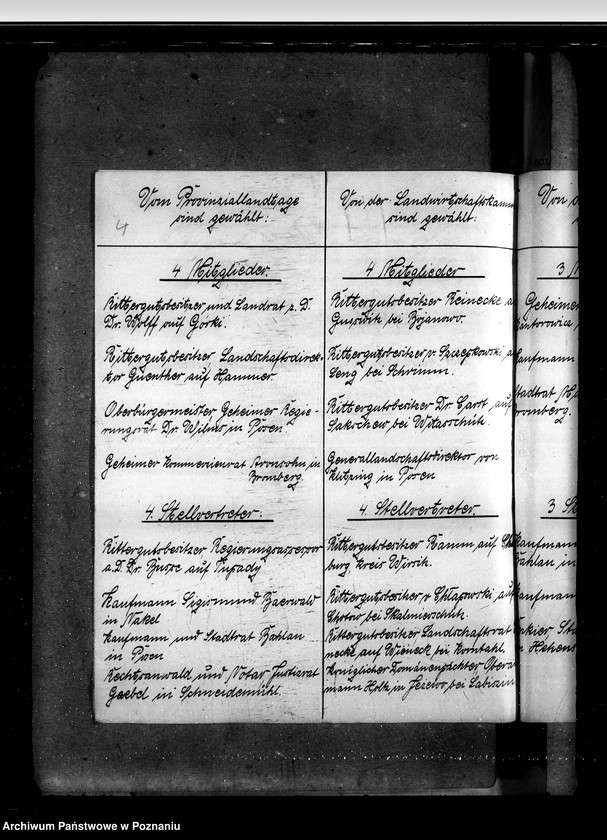 Vom Provinziallandtage
sind gewählt:
4
4 Mitglieder.
Rittergutsbesitzer und Landrat z. D.
Dr. Wolff auf Gorki.
Rittergutsbesitzer Landschaftsdirek-
tor Guenther auf Hammer.
Oberbürgermeister, Geheimer Regie-
rungsrat Dr. Wilms in Posen
Geheimer Kommerzienrat Aronsohn in
Bromberg.
4. Stellvertreter.
Rittergutsbesitzer Regierungsassessor
a. D. Dr. Busse auf Tupady
Kaufmann Sigismund Baerwald
in Nakel
Kaufmann und Stadtrat Kahlan
in Posen
Rechtsanwald und Notar Justizrat
Gaebel in Schneidemühl.
Von der Landwirtschaftskamm
sind gewählt:
4 Mitglieder
Rittergutsbesitzer Reinecke a
bei Bojanowo.
Rittergutsbesitzer v. Szczepkowski a
Leng bei Schrimm.
Rittergutsbesitzer Dr. Carst auf
Sakschew bei Witaschütz.
Generallandschaftsdirektor von
Klitzing in Posen
4. Stellvertreter.
Rittergutsbesitzer Kamm auf
burg Kreis Wirsitz.
Rittergutsbesitzer v Chlapowski auf
bei Skalmierschütz.
Rittergutsbesitzer Landschaftsrat
necke auf bei Korntahl.
Königlicher Domänenpächter Obera
mann Holtz in Jezewo bei Labischin
Von d
3 M
Geheimer
Kantorowicz
Kaufmann
Stadtrat
Bromberg.
3 St
Kaufmann
Kahlan in
Kaufmann
Sta
in Hohens
Archiwum Państwowe w Poznaniu